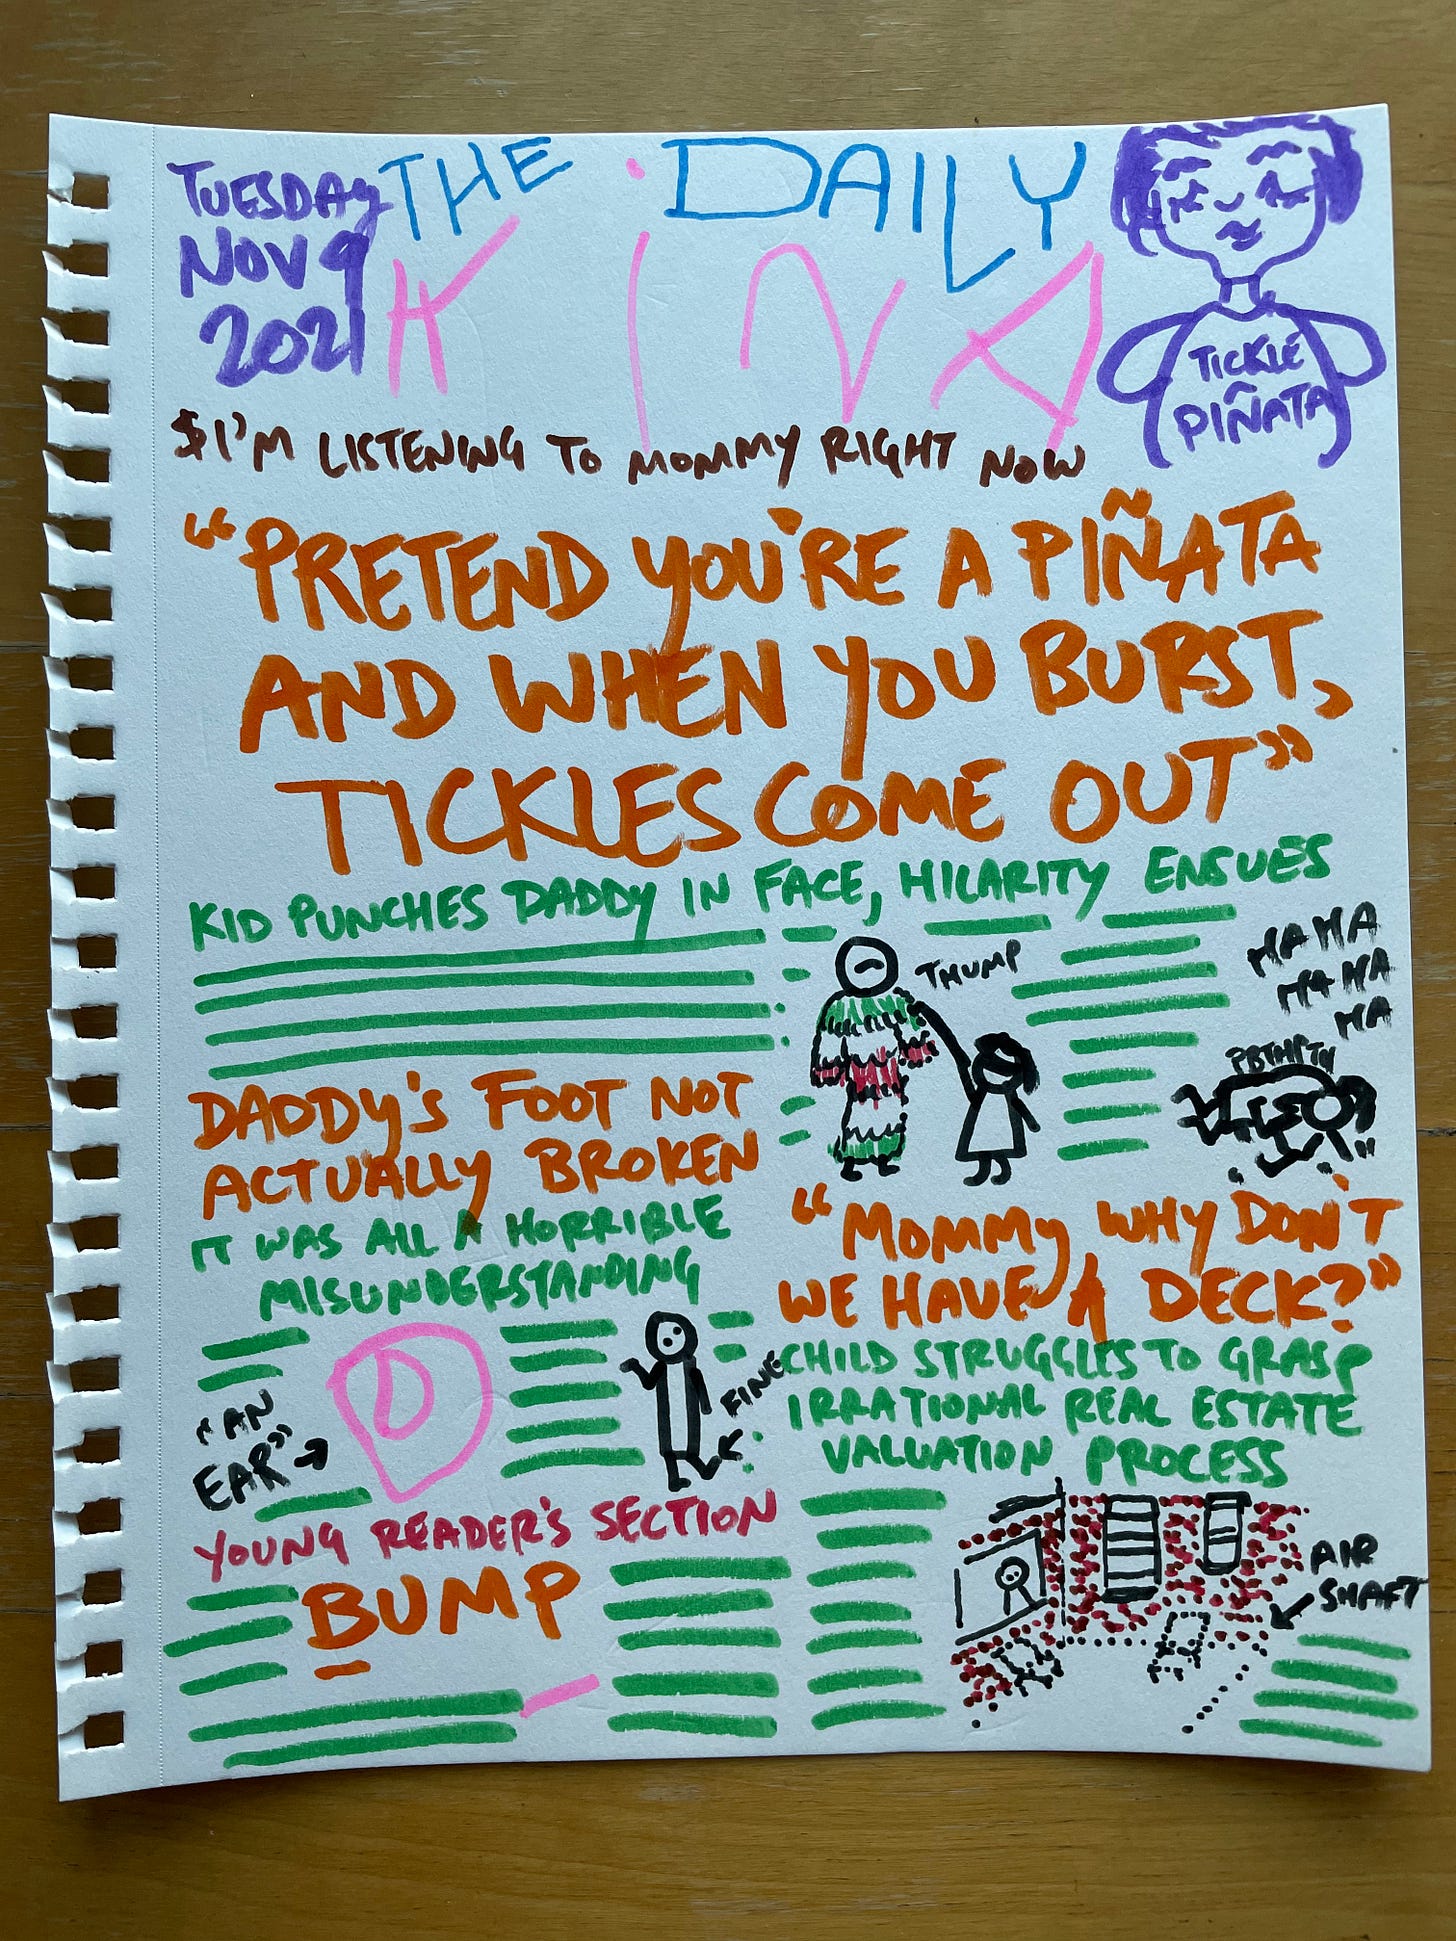 TUESDAY
NOV 9
2021
THE DAILY
KINA
TICKLE
PIÑATA
$I'M LISTENING TO MOMMY RIGHT NOW
"PRETEND YOU'RE A PIÑATA
AND WHEN YOU BURST,
TICKLES COME OUT"
KID PUNCHES DADDY IN FACE, HILARITY ENSUES
THUMP
HA HA
HA HA
HA
PBTHPTH
DADDY'S FOOT NOT
ACTUALLY BROKEN
IT WAS ALL A HORRIBLE
MISUNDERSTANDING
"AN
EAR"
D
FINE
"MOMMY, WHY DON'T
WE HAVE A DECK?"
CHILD STRUGGLES TO GRASP
IRRATIONAL REAL ESTATE
VALUATION PROCESS
AIR
SHAFT
YOUNG READER'S SECTION
BUMP